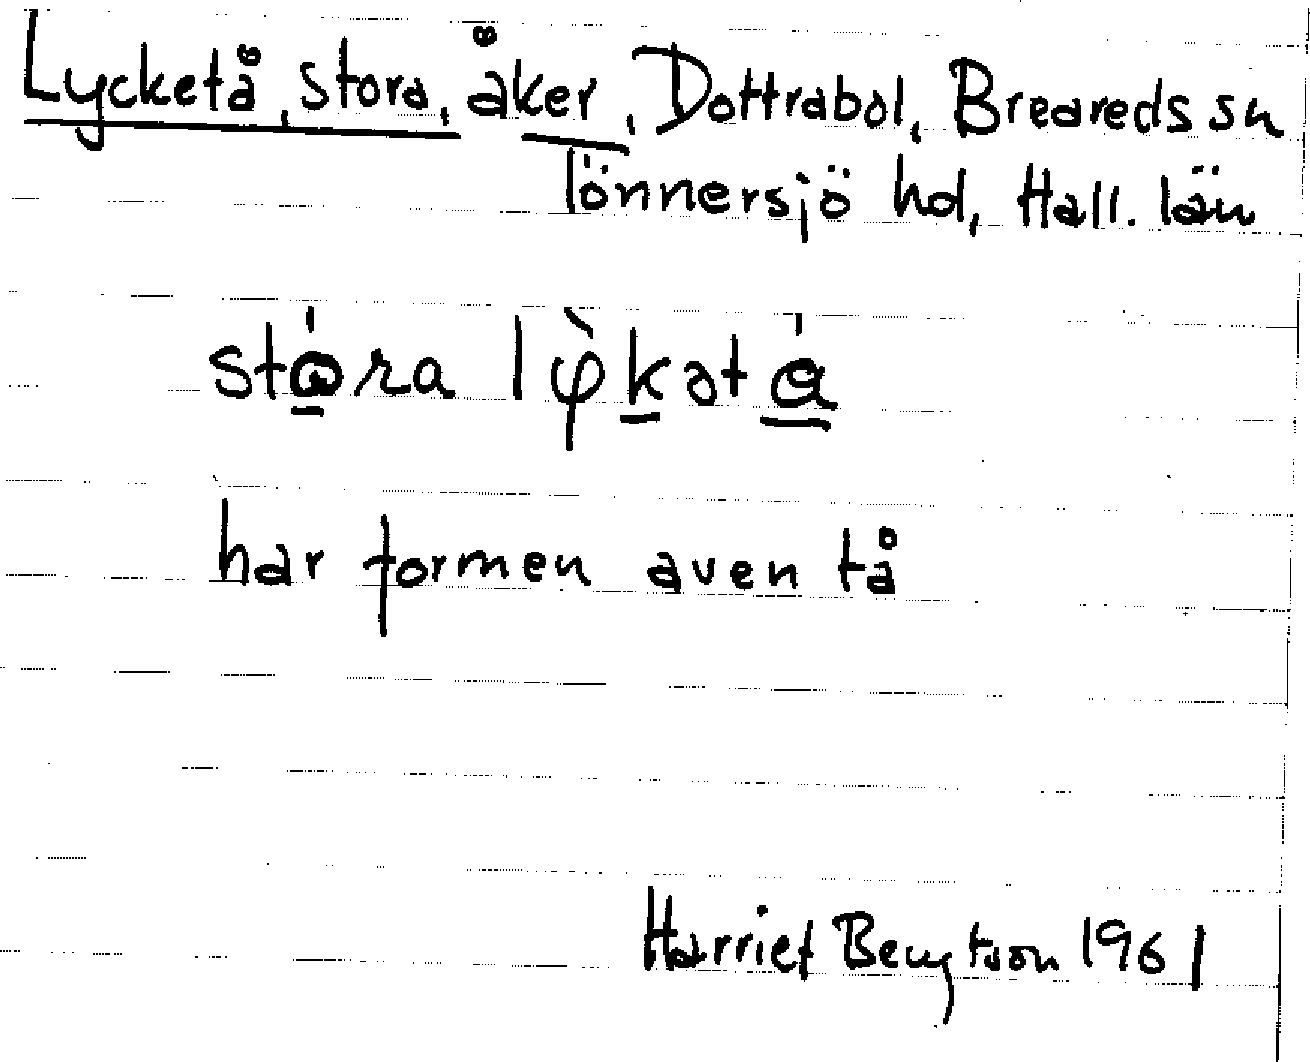 Lycketå, stora, åker, Dottrabol, Breareds sn
Tönnersjö hd, Hall. län
stọ́ra lφ̀ḵətá̱
har formen även tå
Harriet Bengtson 1961